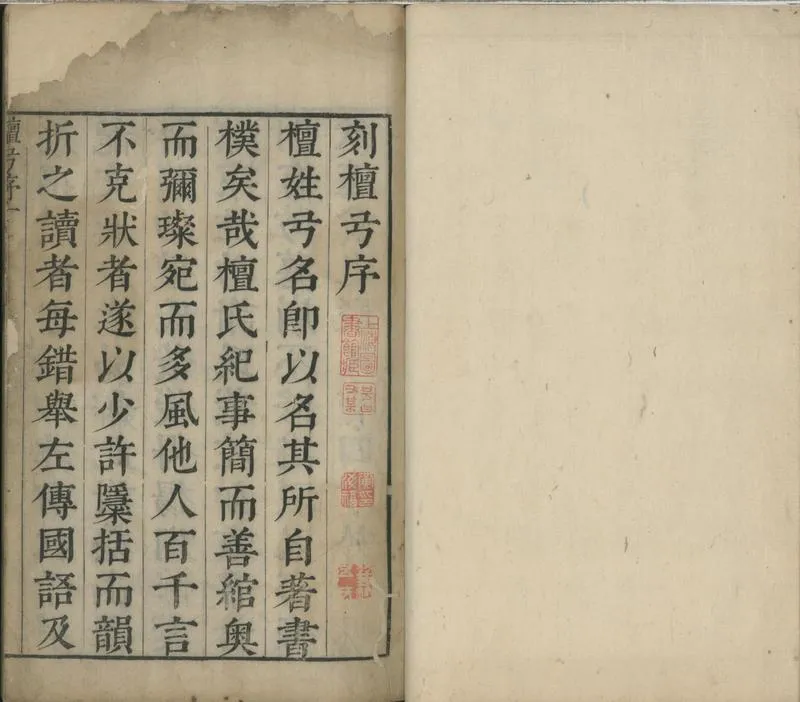 刻檀弓序
檀姓弓名卽以名其所自著書
樸矣哉檀氏紀事簡而善綰奥
而彌璨宛而多風他人百千言
不克狀者遂以少許隱括而韻
折之讀者每錯舉左傳國語及
檀弓序
上海圖書館藏